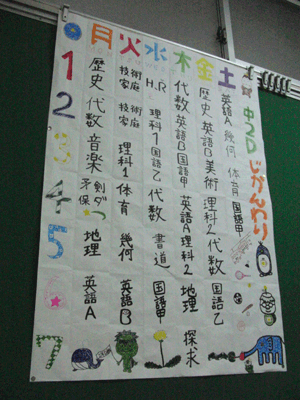 月 火 水 木 金 土
中2Dじかんわり
1 歴史 技術家庭 H.R 代数 歴史 英語A
2 代数 技術家庭 理科1 英語B 英語B 幾何
3 音楽 理科1 国語乙 国語甲 美術 体育
4 体育 代数 英語A 理科2 国語甲
5 地理 幾何 書道 理科2 代数
英語A 英語B 国語甲 地理 国語乙
7 探求